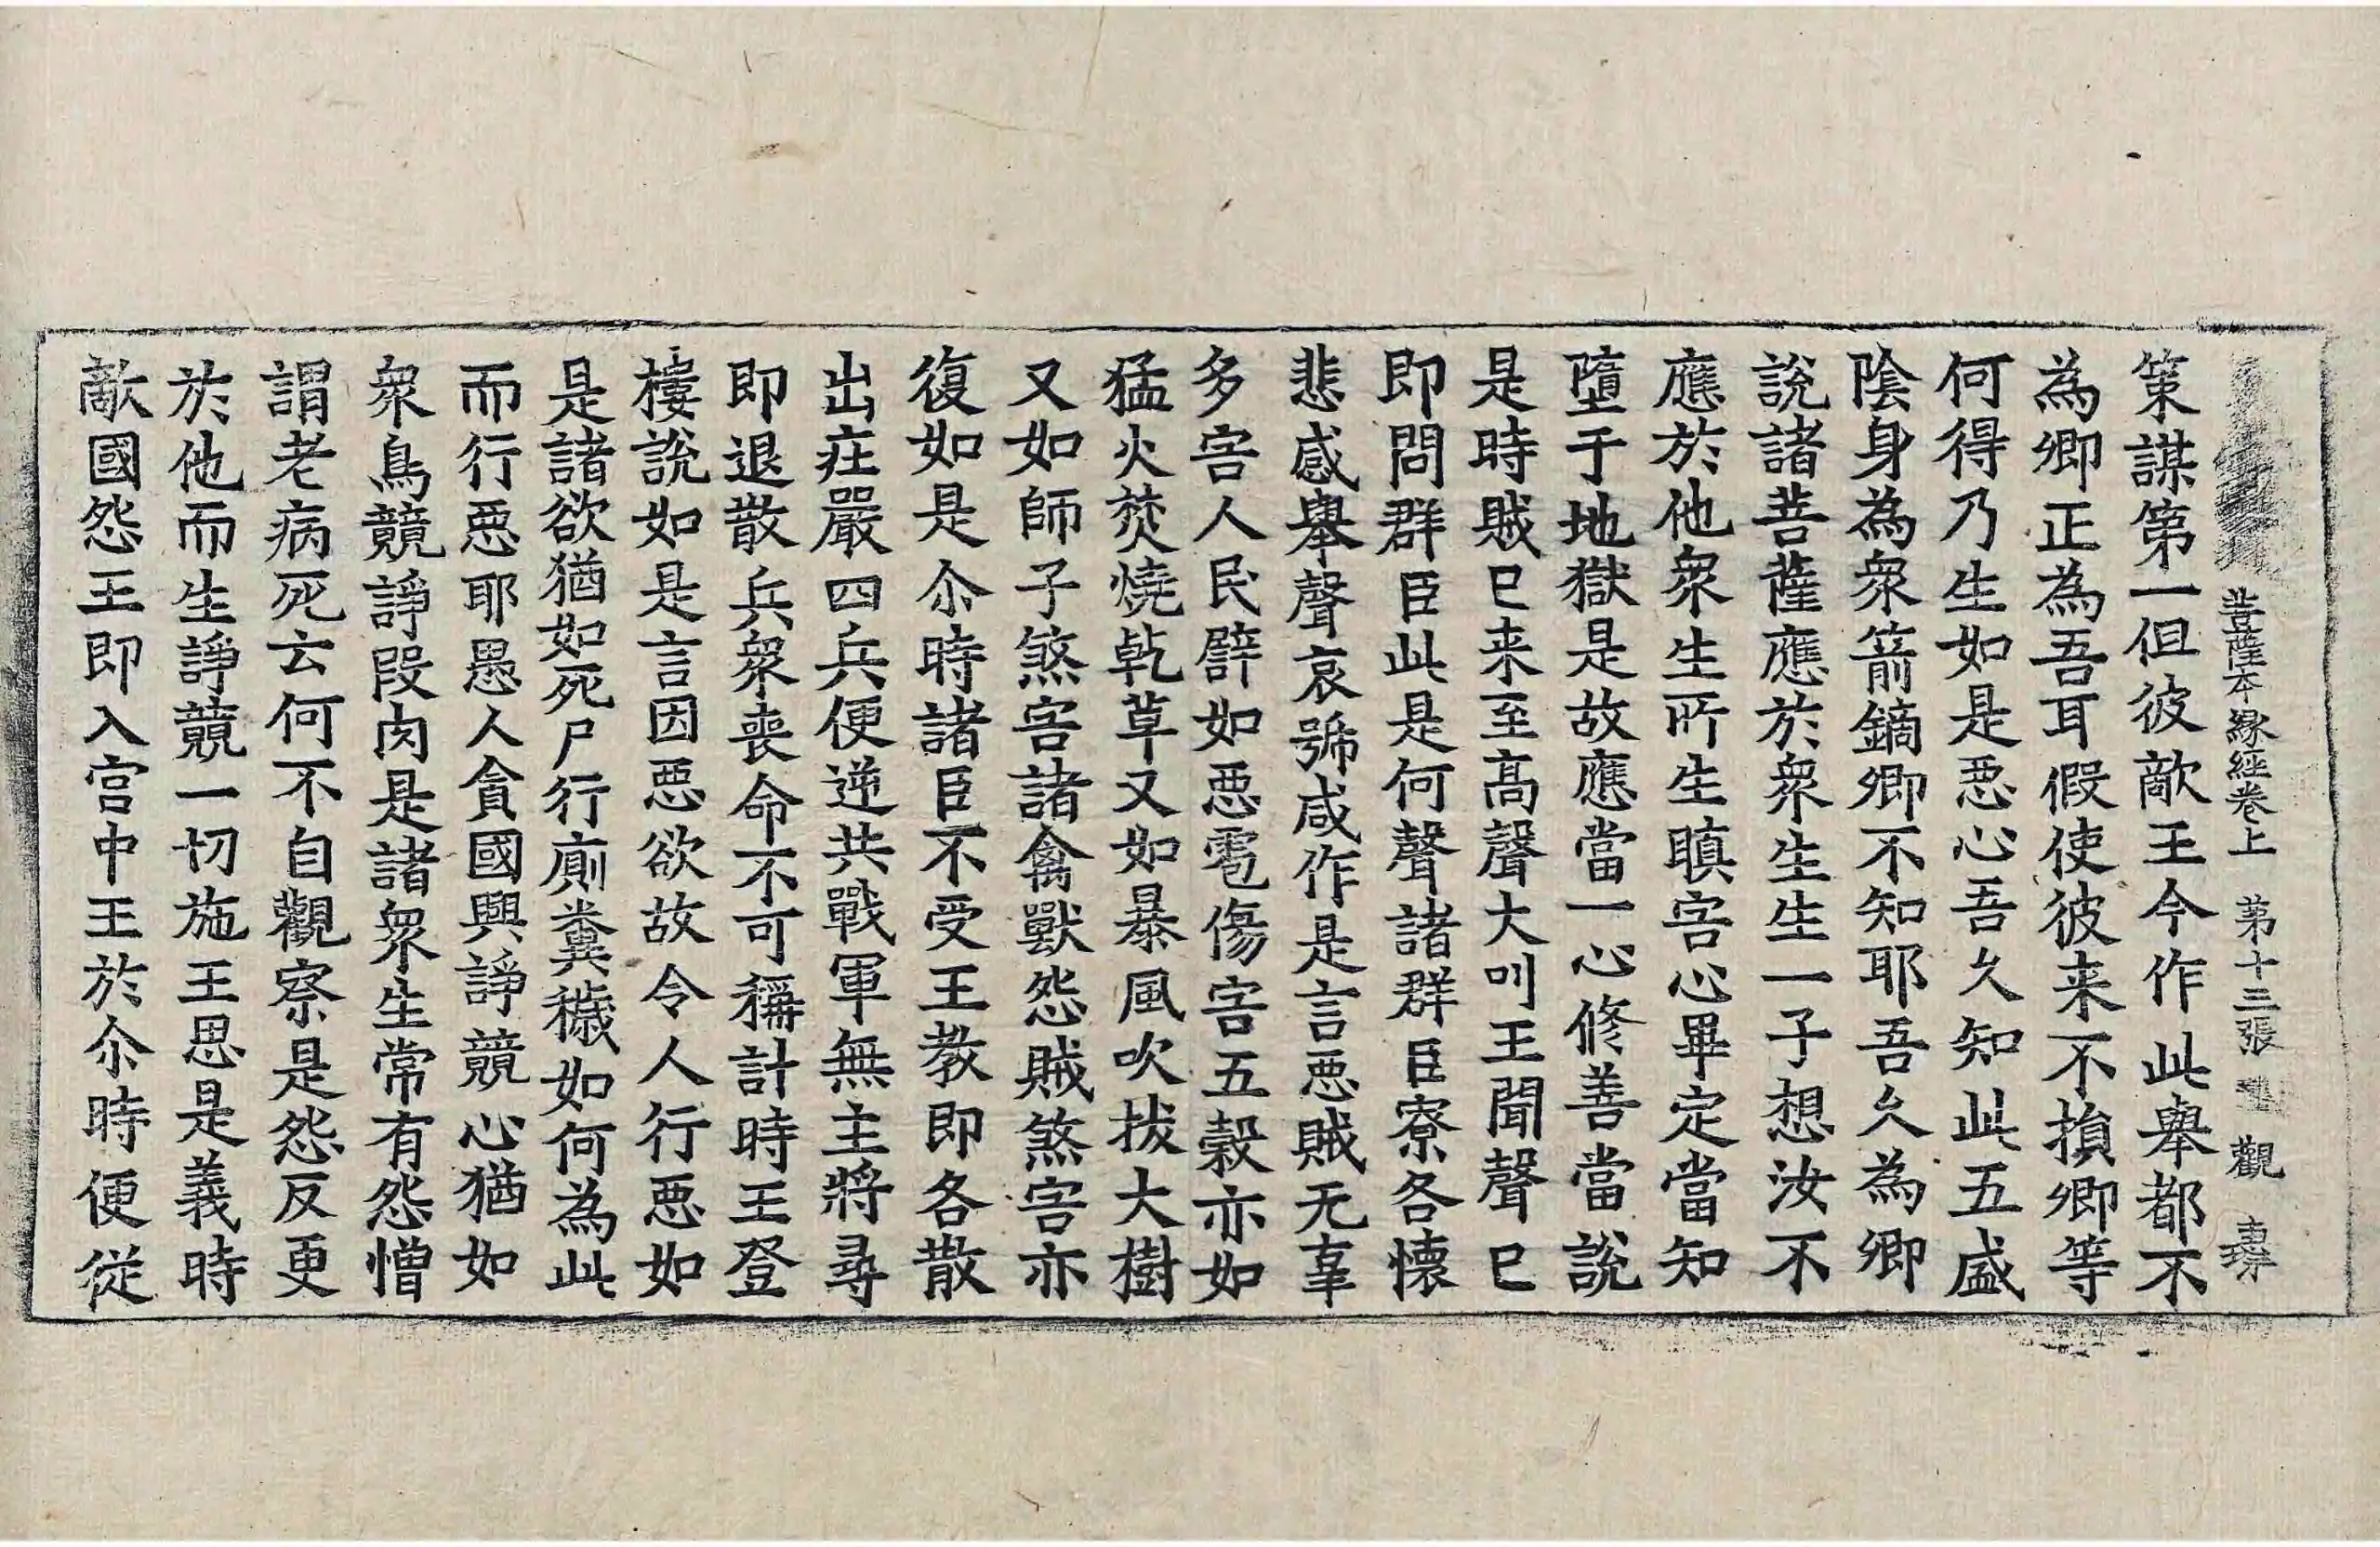 菩薩本緣經卷上 第十三張 觀
策謀第一但彼敵王今作此舉都不
為卿正為吾耳假使彼来不損卿等
何得乃生如是悪心吾久知此五盛
陰身為衆箭鏑卿不知耶吾久為卿
說諸菩薩應於衆生生一子想汝不
應於他衆生所生瞋害心畢定當知
墮于地獄是故應當一心修善當說
是時賊已来至高聲大叫王聞聲已
即問群臣此是何聲諸群臣寮各懷
悲慼舉聲哀號咸作是言悪賊无辜
多害人民譬如悪雹傷害五穀亦如
猛火焚燒乾草又如暴風吹拔大樹
又如師子煞害諸禽獸怨賊煞害亦
復如是尒時諸臣不受王教即各散
出莊嚴四兵便逆共戰軍無主將尋
即退散兵衆喪命不可稱計時王登
樓說如是言因悪欲故令人行悪如
是諸欲猶如死尸行廁糞穢如何為此
而行悪耶愚人貪國興諍競心猶如
衆鳥競諍段肉是諸衆生常有怨憎
謂老病死云何不自觀察是怨反更
於他而生諍競一切施王思是義時
敵國怨王即入宮中王於尒時便從